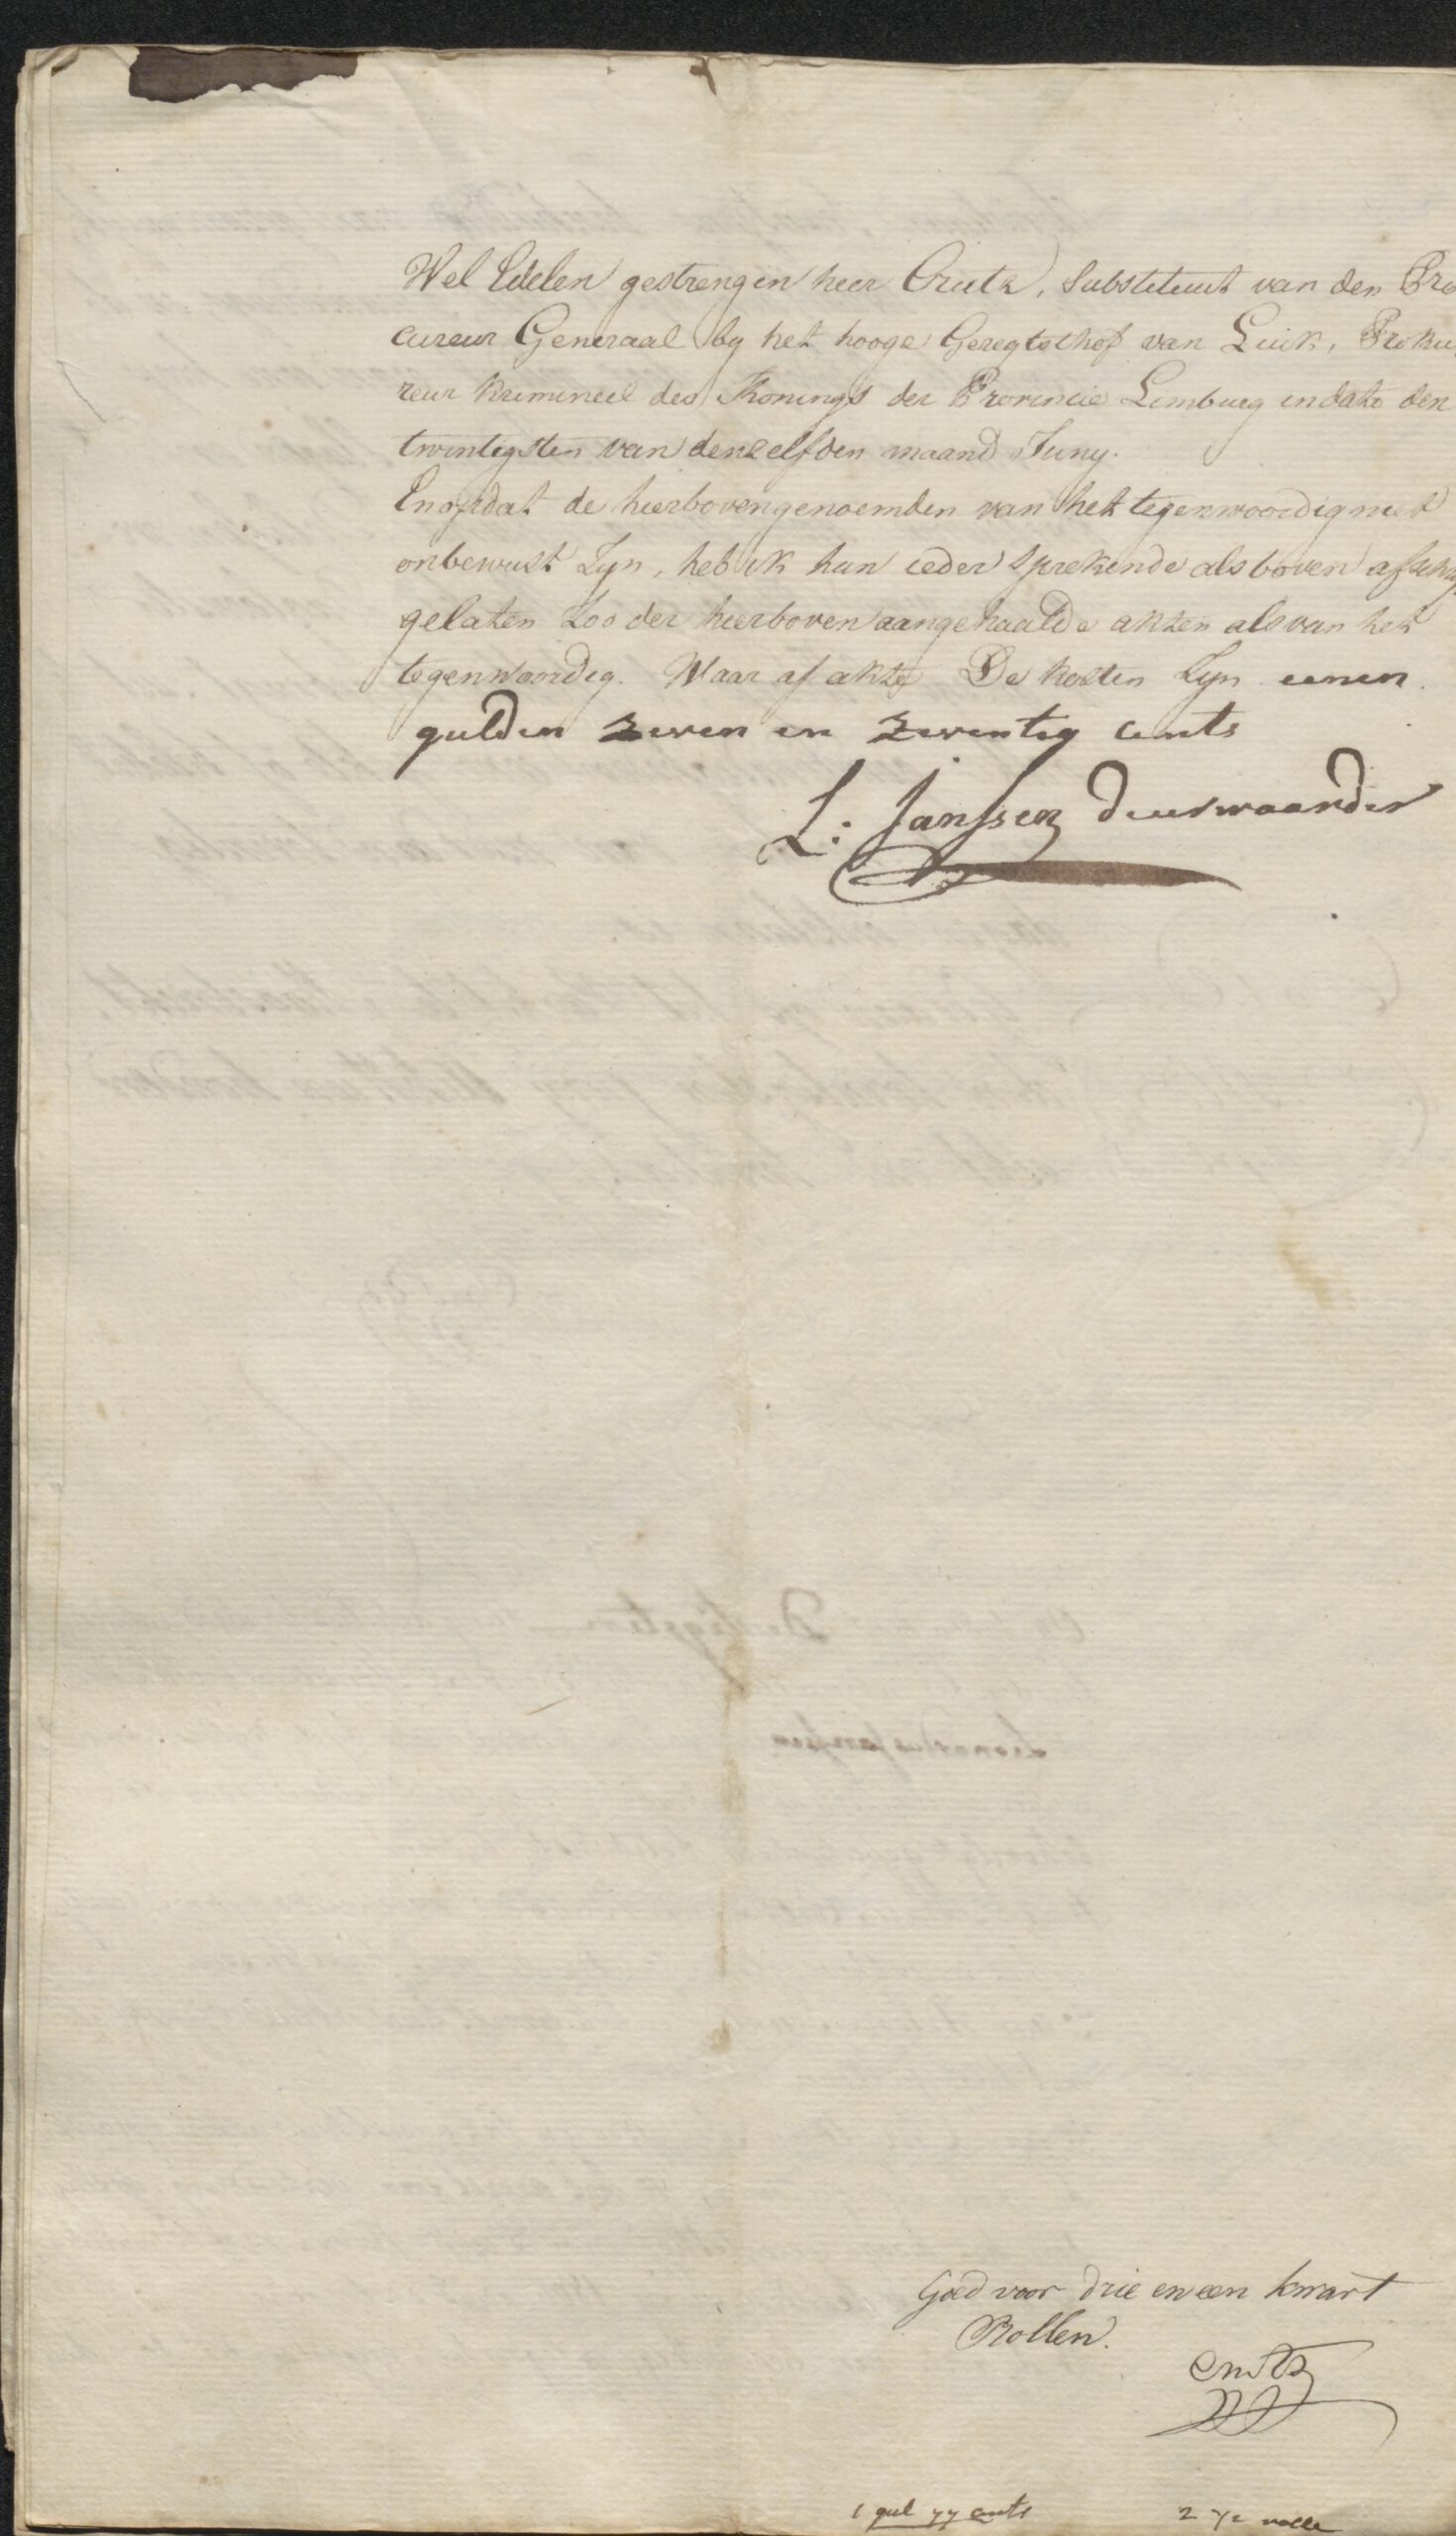 Wel Edelen gestrengen heer Crutz, Substituut van den Pro
cureur Generaal by het hooge Geregtshof van Luik, Proku
reur Krimineel des Konings der Provincie Limburg in dato den
twintigsten van denzelfden maand Juny.
En opdat de hierbovengenoemden van het tegenwoordig niet
onbewust Zyn, heb ik hun ieder sprekende als boven afschr
gelaten Zoo der hierboven aangehaalde akten als van het
tegenwoordig. Waar af akte De kosten Zyn eenen
gulden zeven en zeventig cents
L: Janssen deurwaarder
Goed voor drie en een kwart
Rollen.
Crutz
1 gul 77 cents 2 1/2 rolle